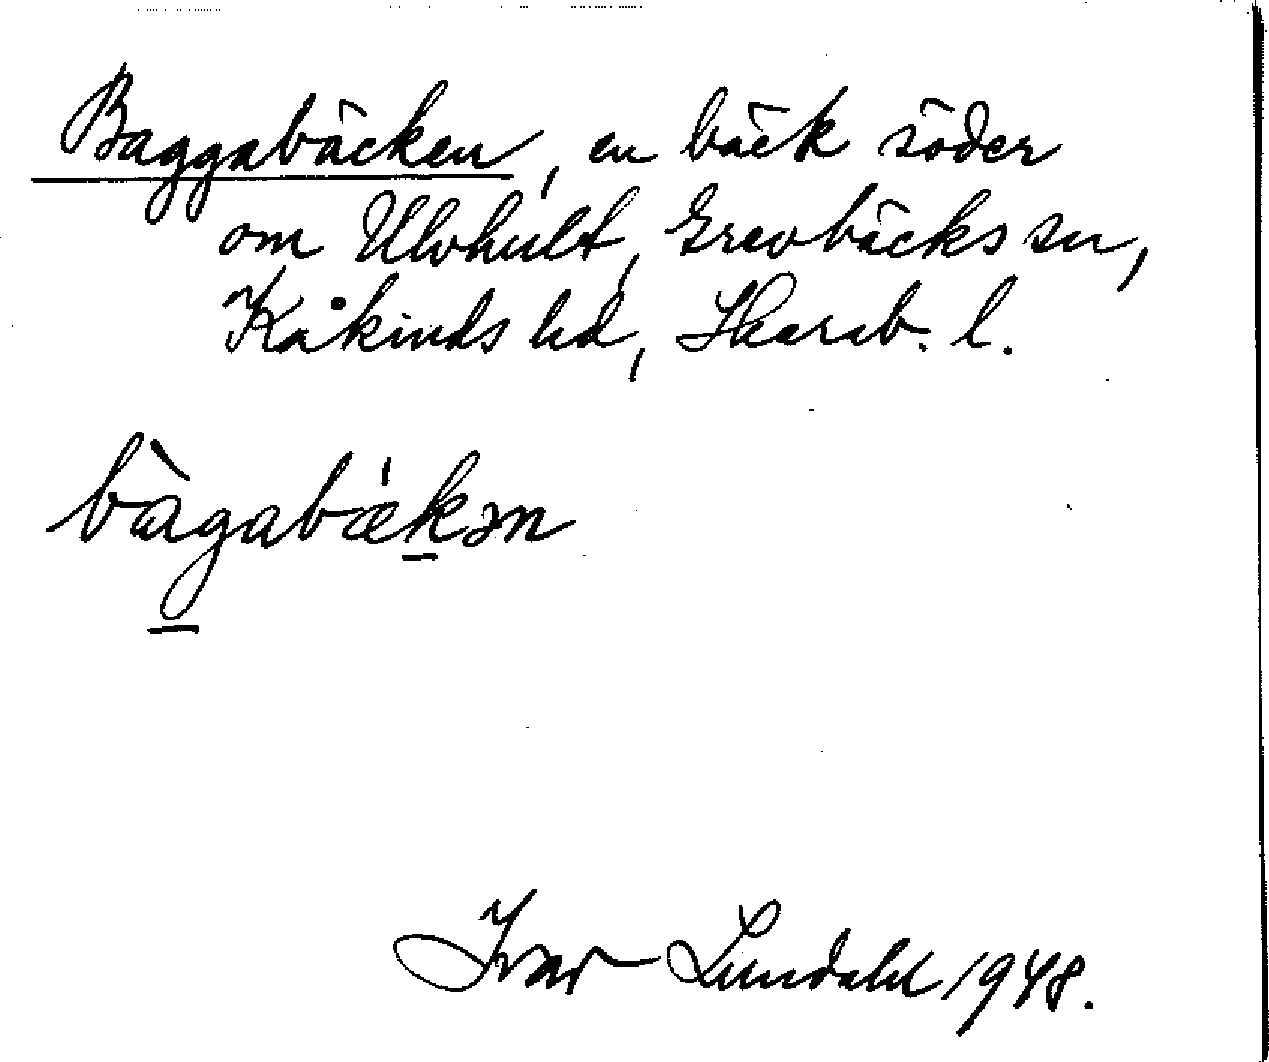 Baggabäcken, en bäck söder
om Ulvhult, Grevbäcks sn,
Kåkinds hd, Skarab. l.
bàgabǽkən
Ivar Lundahl 1948.